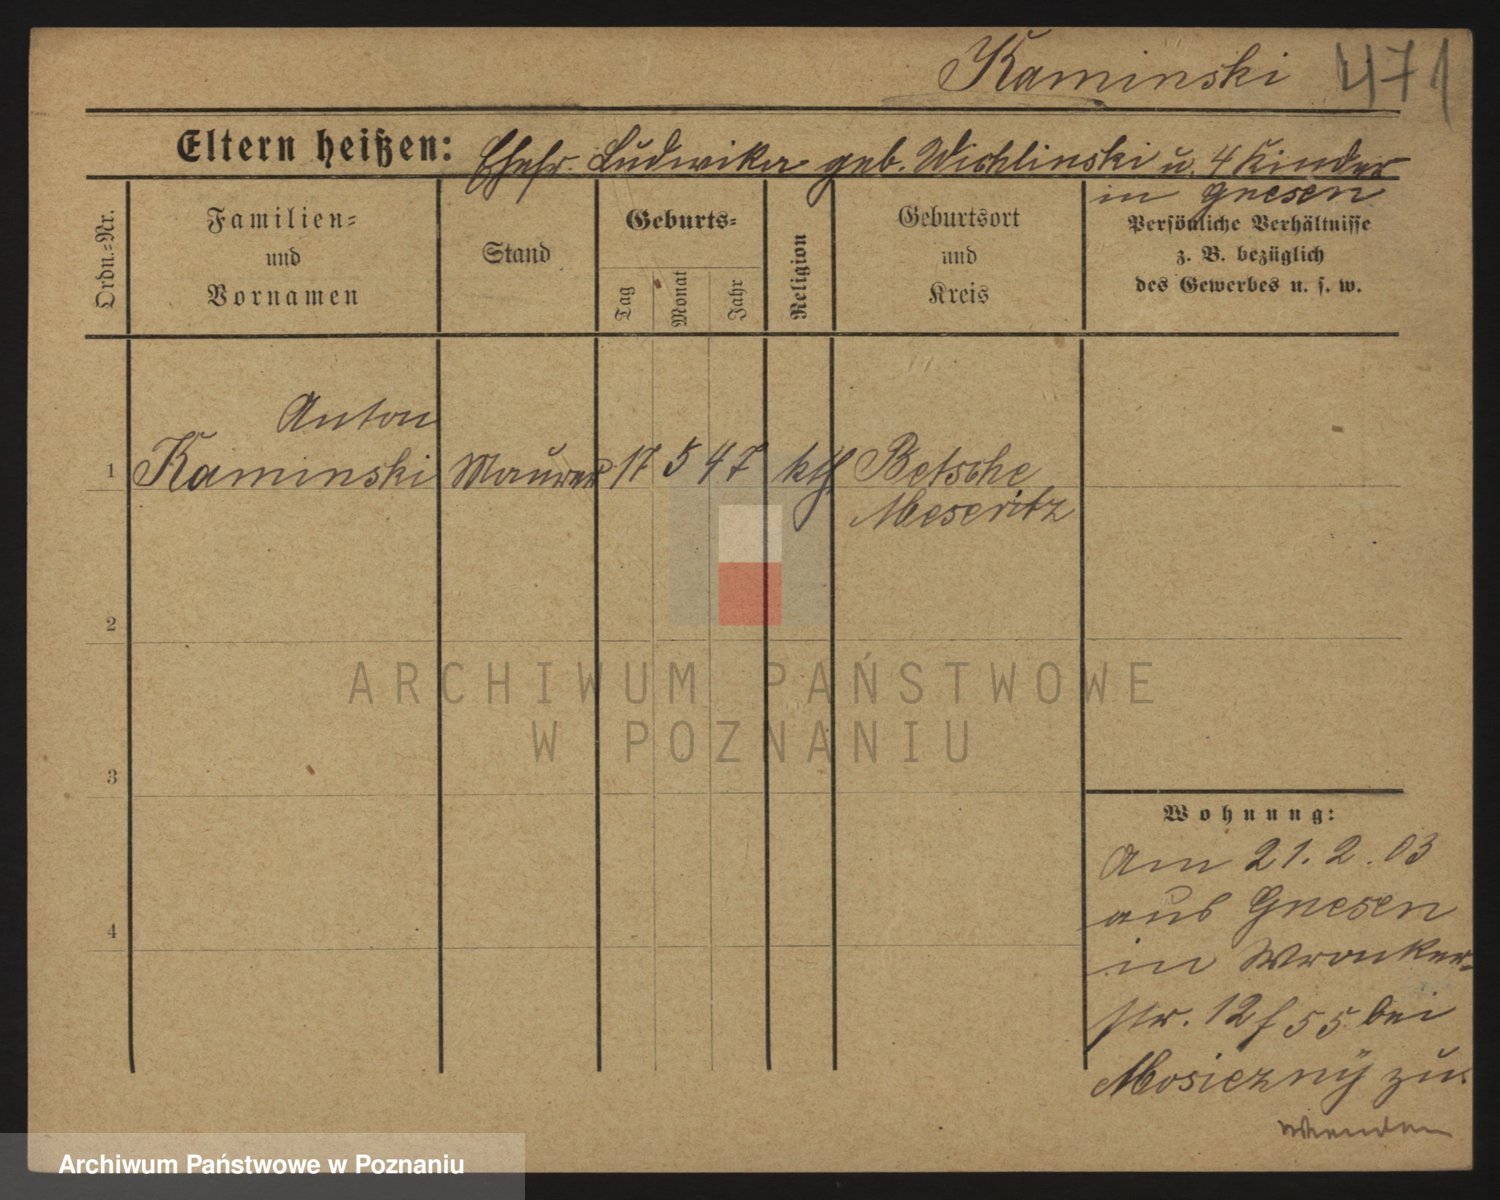 Kaminski 471
Eltern heißen: Ehefr. Ludwika geb. Wichlinski u. 4 Kinder
in Gnesen
Ordn.-Nr.
Familien-
und
Vornamen
Stand
Geburts-
Tag
Monat
Jahr
Religion
Geburtsort
und
Kreis
Persönliche Verhältnisse
z. B. bezüglich
des Gewerbes u. s. w.
Anton
1 Kaminski Maurer 17 5 47 kth Betsche
Meseritz
2
ARCHIWUM PAŃSTWOWE
W POZNANIU
3
Wohnung:
Am 21.2.03
aus Gnesen
in Wronker-
4
str. 12 f 55 bei
Mosiezny zu.
wenden
Archiwum Państwowe w Poznaniu